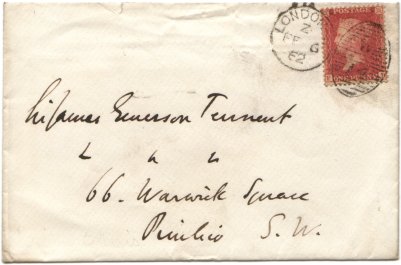 LONDON
Z
FE 6
62
Sir James Emerson Tennent
66. Warwick Square
Pimlico S. W.